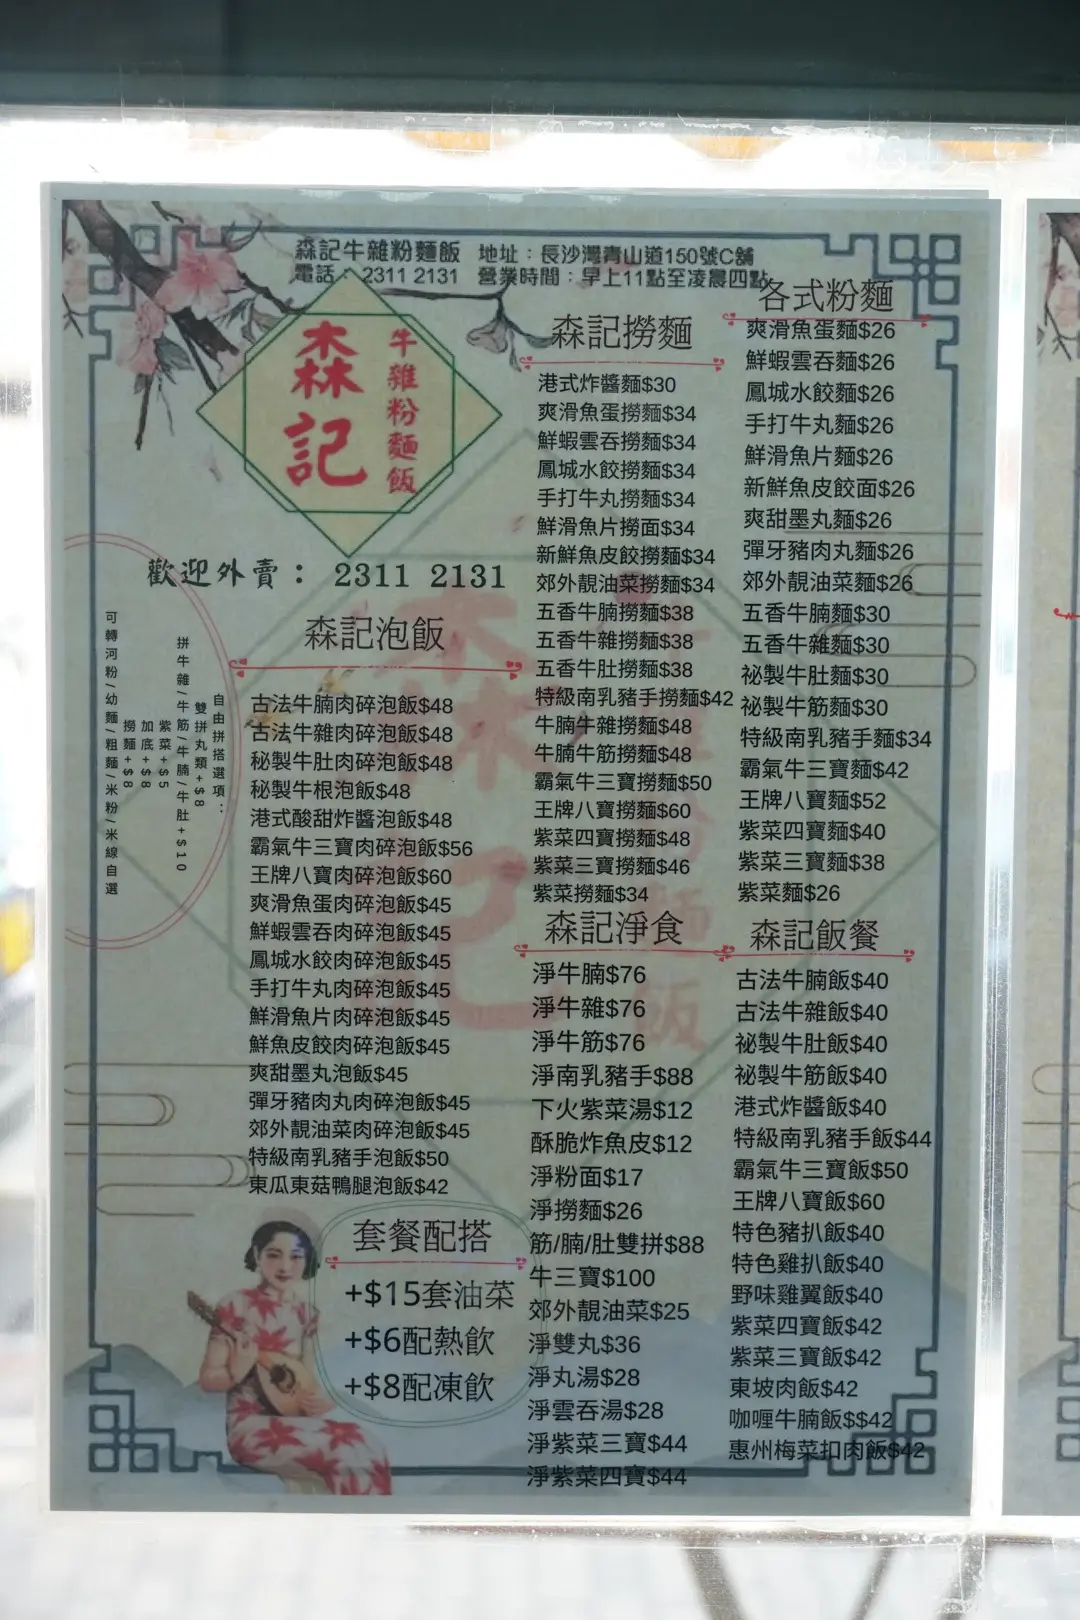 森記牛雜粉麵飯 地址：長沙灣青山道150號C舖
電話： 2311 2131 營業時間：早上11點至凌晨四點
森記
牛雜粉麵飯
歡迎外賣： 2311 2131
自由拼搭選項：
雙拼丸類+$8
拼牛雜/牛筋/牛腩/牛肚+$10
紫菜+$5
加底+$8
撈麵+$8
可轉河粉/幼麵/粗麵/米粉/米線自選
森記泡飯
古法牛腩肉碎泡飯$48
古法牛雜肉碎泡飯$48
秘製牛肚肉碎泡飯$48
秘製牛根泡飯$48
港式酸甜炸醬泡飯$48
霸氣牛三寶肉碎泡飯$56
王牌八寶肉碎泡飯$60
爽滑魚蛋肉碎泡飯$45
鮮蝦雲吞肉碎泡飯$45
鳳城水餃肉碎泡飯$45
手打牛丸肉碎泡飯$45
鮮滑魚片肉碎泡飯$45
鮮魚皮餃肉碎泡飯$45
爽甜墨丸泡飯$45
彈牙豬肉丸肉碎泡飯$45
郊外靚油菜肉碎泡飯$45
特級南乳豬手泡飯$50
東瓜東菇鴨腿泡飯$42
套餐配搭
+$15套油菜
+$6配熱飲
+$8配凍飲
森記撈麵
港式炸醬麵$30
爽滑魚蛋撈麵$34
鮮蝦雲吞撈麵$34
鳳城水餃撈麵$34
手打牛丸撈麵$34
鮮滑魚片撈面$34
新鮮魚皮餃撈麵$34
郊外靚油菜撈麵$34
五香牛腩撈麵$38
五香牛雜撈麵$38
五香牛肚撈麵$38
特級南乳豬手撈麵$42
牛腩牛雜撈麵$48
牛腩牛筋撈麵$48
霸氣牛三寶撈麵$50
王牌八寶撈麵$60
紫菜四寶撈麵$48
紫菜三寶撈麵$46
紫菜撈麵$34
森記淨食
淨牛腩$76
淨牛雜$76
淨牛筋$76
淨南乳豬手$88
下火紫菜湯$12
酥脆炸魚皮$12
淨粉面$17
淨撈麵$26
筋/腩/肚雙拼$88
牛三寶$100
郊外靚油菜$25
淨雙丸$36
淨丸湯$28
淨雲吞湯$28
淨紫菜三寶$44
淨紫菜四寶$44
各式粉麵
爽滑魚蛋麵$26
鮮蝦雲吞麵$26
鳳城水餃麵$26
手打牛丸麵$26
鮮滑魚片麵$26
新鮮魚皮餃面$26
爽甜墨丸麵$26
彈牙豬肉丸麵$26
郊外靚油菜麵$26
五香牛腩麵$30
五香牛雜麵$30
祕製牛肚麵$30
祕製牛筋麵$30
特級南乳豬手麵$34
霸氣牛三寶麵$42
王牌八寶麵$52
紫菜四寶麵$40
紫菜三寶麵$38
紫菜麵$26
森記飯餐
古法牛腩飯$40
古法牛雜飯$40
祕製牛肚飯$40
祕製牛筋飯$40
港式炸醬飯$40
特級南乳豬手飯$44
霸氣牛三寶飯$50
王牌八寶飯$60
特色豬扒飯$40
特色雞扒飯$40
野味雞翼飯$40
紫菜四寶飯$42
紫菜三寶飯$42
東坡肉飯$42
咖喱牛腩飯$$42
惠州梅菜扣肉飯$42